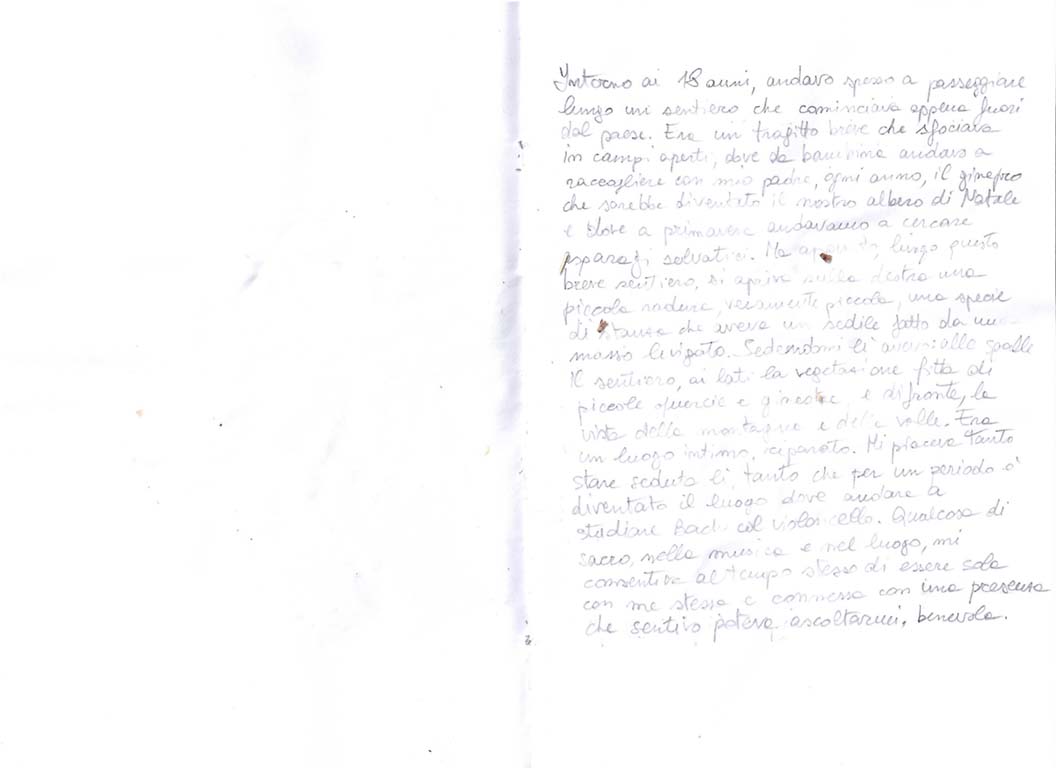 Intorno ai 18 anni, andavo spesso a passeggiare
lungo un sentiero che cominciava appena fuori
dal paese. Era un tragitto breve che sfociava
in campi aperti, dove da bambina andavo a
raccogliere con mio padre, ogni anno, il ginepro
che sarebbe diventato il nostro albero di Natale
e dove a primavera andavamo a cercare
asparagi selvatici. Ma lungo questo
breve sentiero, si apriva sulla destra una
piccola radura, veramente piccola, una specie
di stanza che aveva un sedile fatto da un
masso levigato. Sedendomi lì avevo alle spalle
il sentiero, ai lati la vegetazione fitta di
piccole querce e ginestre, e di fronte, la
vista delle montagne e della valle. Era
un luogo intimo, riparato. Mi piaceva tanto
stare seduta lì, tanto che per un periodo è
diventato il luogo dove andare a
studiare Bach col violoncello. Qualcosa di
sacro, nella musica e nel luogo, mi
consentiva al tempo stesso di essere sola
con me stessa e connessa con una presenza
che sentivo poteva ascoltarmi, benevola.